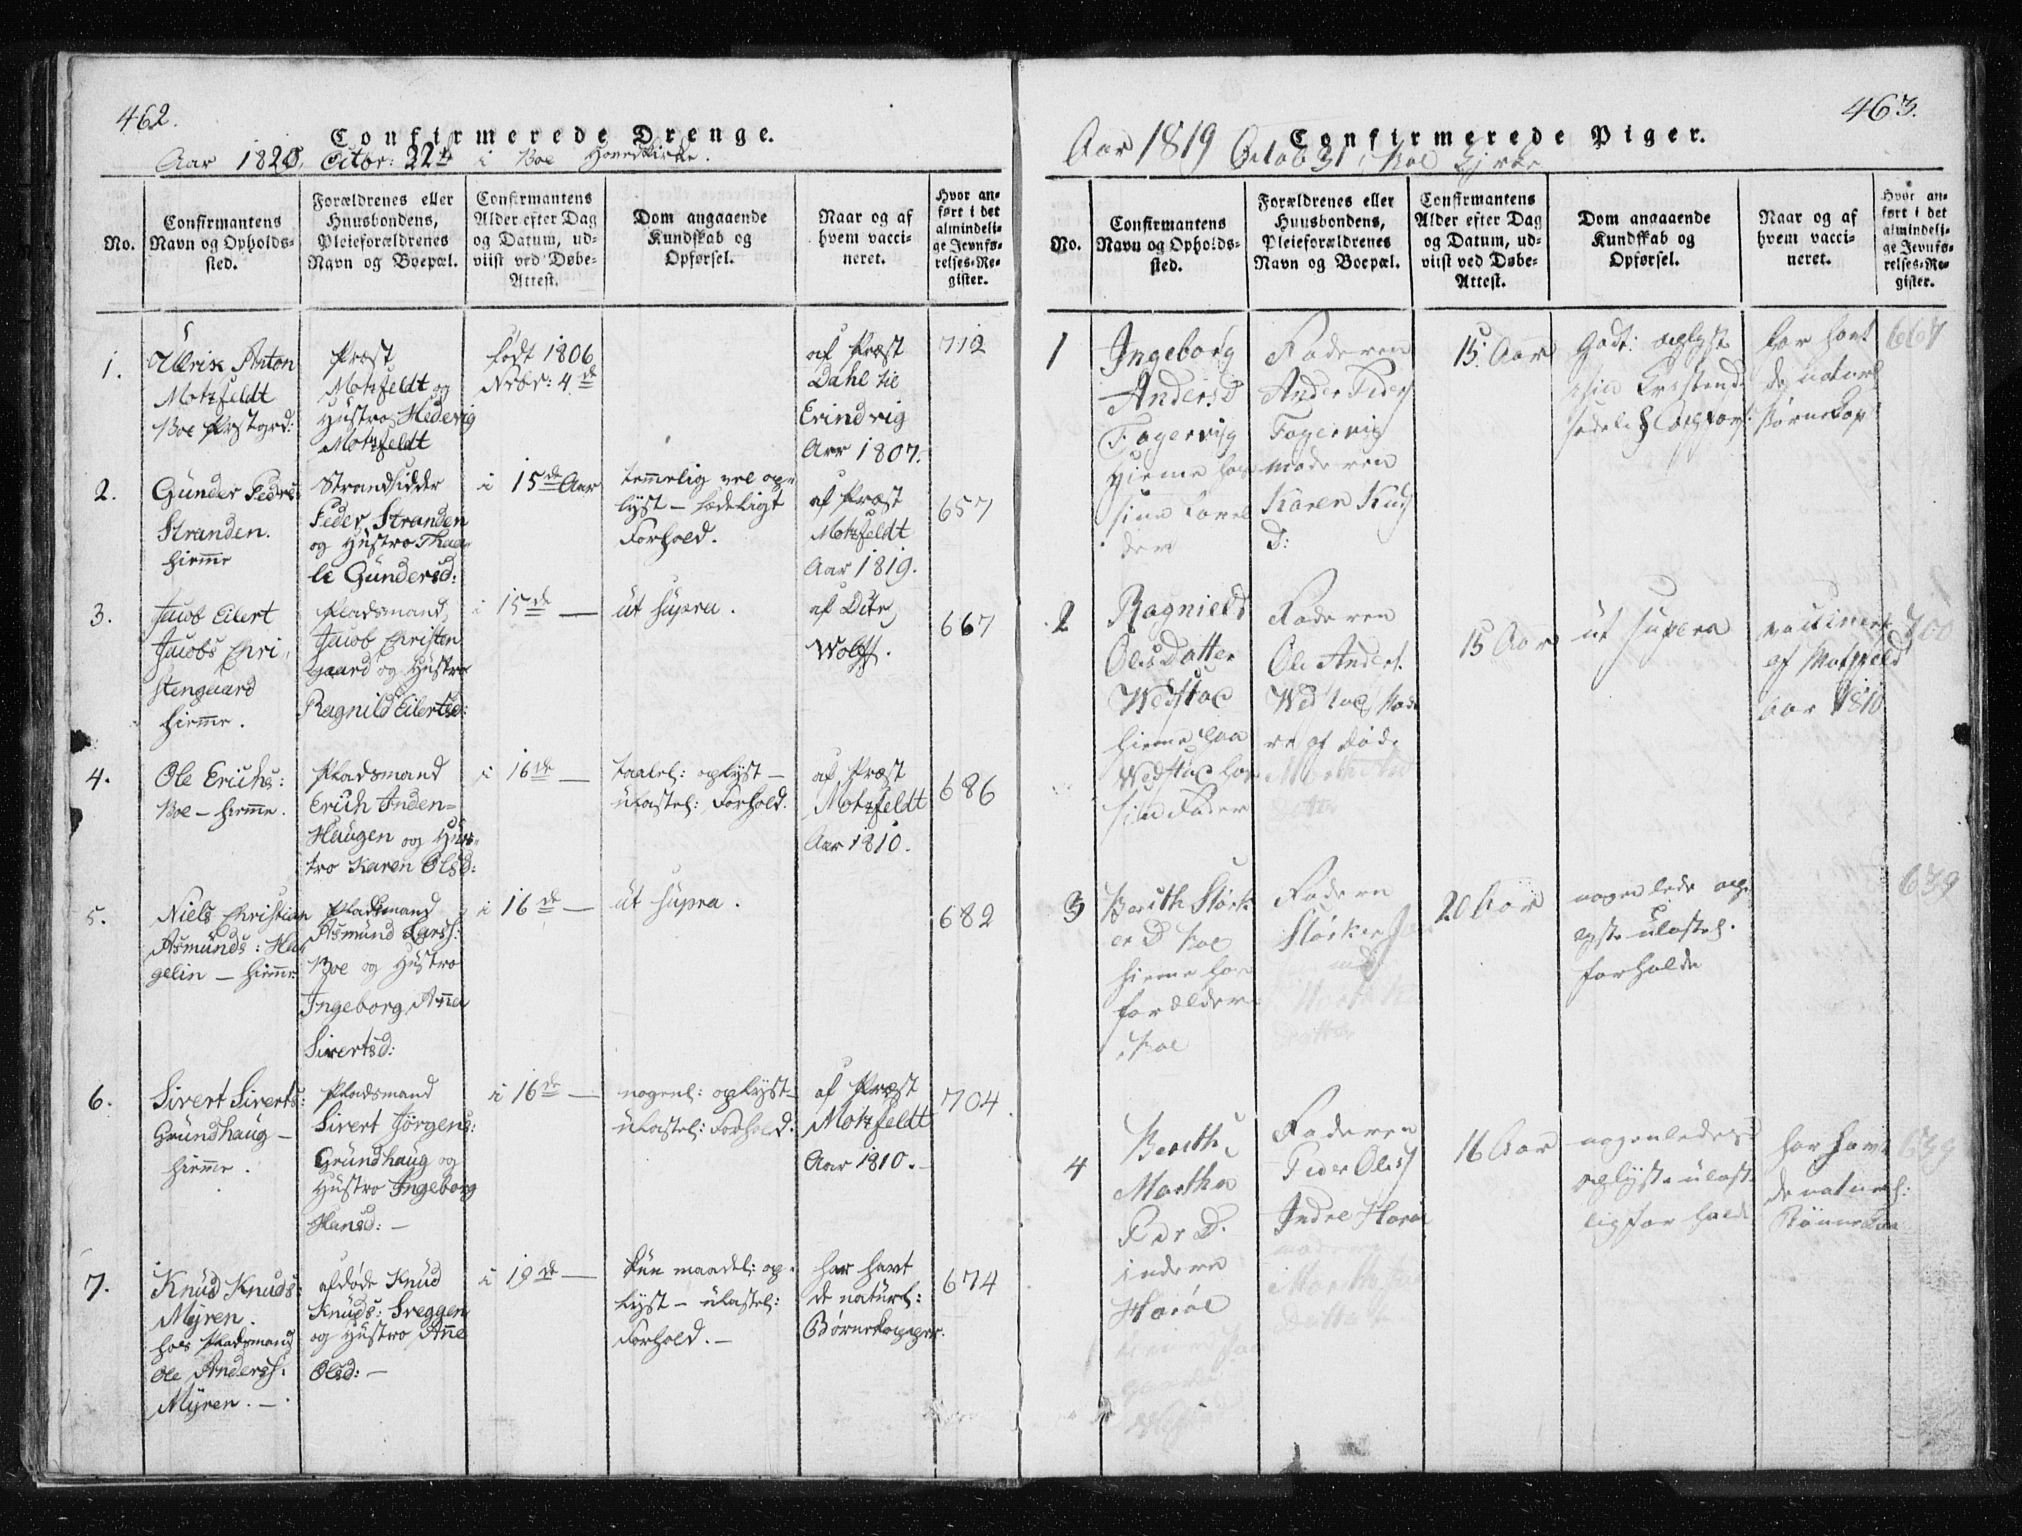 462.
Confirmerede Drenge.
Aar 1820. Octbr: 22de i Boe Hovedkirke.
No.
Confirmantens
Navn og Opholds-
sted.
Forældrenes eller
Huusbondens,
Pleieforældrenes
Navn og Boepæl.
Confirmantens
Alder efter Dag
og Datum, ud-
viist ved Døbe-
Attest.
Dom angaaende
Kundskab og
Opførsel.
Naar og af
hvem vacci-
neret.
Hvor an-
ført i det
almindeli-
ge Jevnfø-
relses-Re-
gister.
1.
Ulrik Anton
Motzfeldt
Boe Præstgrd:
Præst
Motzfeldt og
Hustro Hedevig
Motzfeldt
født 1806
Nvbr: 4de
af Præst
Dahl til
Erindvig
Aar 1807.
712
2.
Gunder Peders:
Stranden.
hiemme
Strandsidder
Peder Stranden
og Hustro Thaa-
le Gundersd:
i 15de Aar
temmelig vel op-
lyst – sædeligt
Forhold.
af Præst
Motzfeldt
Aar 1819.
657
3.
Jacob Eilert
Jacobs Chri-
stengaard
hiemme.
Pladsmand
Jacob Christen
gaard og Hustro
Ragnild Eilertsd:
i 15de —
ut supra.
af Ditr
Wolff.
667
4.
Ole Erichs:
Boe – hiemme.
Pladsmand
Erich Inden-
Haugen og Hus-
tro Karen Olsd:
i 16de —
taalel: oplyst –
ulastel: Forhold.
af Præst
Motzfeldt
Aar 1810.
686
5.
Niels Christian
Asmunds: Ha
gelin – hiemme
Pladsmand
Asmund Larss:
Boe og Hustro
Ingeborg Anna
Sivertsd:
i 16de —
ut supra.
682
6.
Sivert Siverts:
Grundhaug –
hiemme.
Pladsmand
Sivert Jørgens:
Grundhaug og
Hustro Ingeborg
Hansd: –
i 16de —
nogenl: oplyst –
ulastel: Forhold.
af Præst
Motzfeldt
Aar 1810. –
704.
7.
Knud Knuds:
Myren.
hos Pladsmand
Ole Anderss:
Myren. –
afdøde Knud
Knuds: Sveggen
og Hustro Anne
Olsd: –
i 19de —
kun maadel: op-
lyst – ulastel:
Forhold. –
har havt
de naturl:
Børnekopper.
674
463.
Confirmerede Piger.
Aar 1819 Octob 31 i Boe Kirke
No.
Confirmantens
Navn og Opholds-
sted.
Forældrenes eller
Huusbondens,
Pleieforældrenes
Navn og Boepæl.
Confirmantens
Alder efter Dag
og Datum, ud-
viist ved Døbe-
Attest.
Dom angaaende
Kundskab og
Opførsel.
Naar og af
hvem vacci-
neret.
Hvor an-
ført i det
almindeli-
ge Jevnfø-
relses-Re-
gister.
1
Ingeborg
Anders D
Fagervig
Hieme hos
sine Foræl
der
Faderen
Ander Peders
Fagervig
moderen
Karen Knds
D:
15 Aar
Godt: oplyst
har havt
de naturl
børnekop:
667
2
Ragnield
Olis Datter
Wedstoe
hieme paa
Wedstoe hos
sin Fader
Faderen
Ole Anders.
Wedstoe
15 Aar
ut supera
vaccineret
af Motzfeld
Aar 1810
700
3
Berith Størk
er D Boe
hieme hos
forældere
i Boe
Faderen
Størker
20 Aar
nogenlede op-
lyst ulastel.
forholde
639
4
Berith
Martha
Peder D.
indere
Harøe
Faderen
Peder Oles
Indre Harøe
16 Aar
nogenledes
oplyst ulast
lig forhold
har hav
de naturl:
Børnekop
639